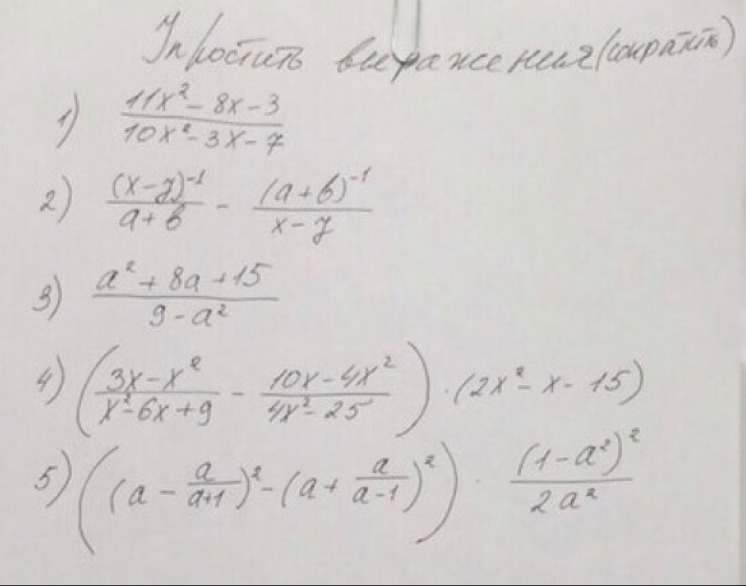 Упростить выражения (сократить)
1) \frac{11x^2 - 8x - 3}{10x^2 - 3x - 7}
2) \frac{(x-y)^{-1}}{a+b} - \frac{(a+b)^{-1}}{x-y}
3) \frac{a^2 + 8a + 15}{9 - a^2}
4) \left( \frac{3x - x^2}{x^2 - 6x + 9} - \frac{10x - 4x^2}{4x^2 - 25} \right) \cdot (2x^2 - x - 15)
5) \left( (a - \frac{a}{a+1})^2 - (a + \frac{a}{a-1})^2 \right) \cdot \frac{(1 - a^2)^2}{2a^2}